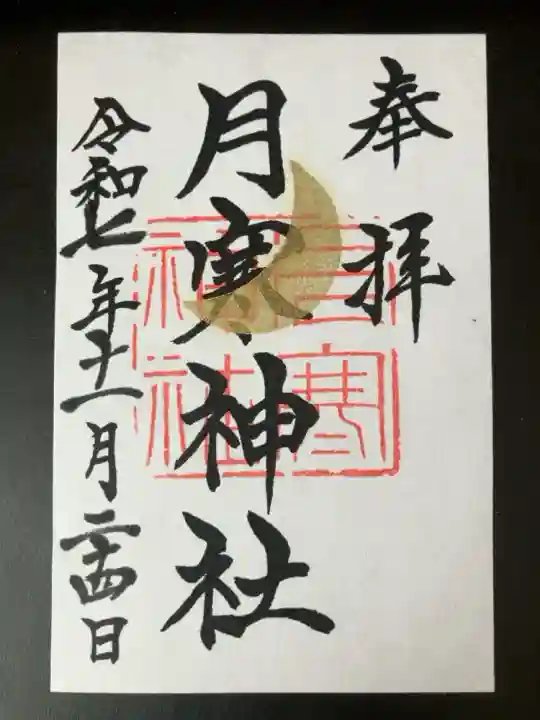 奉拝
月寒神社
月寒神社
令和七年十一月二十四日